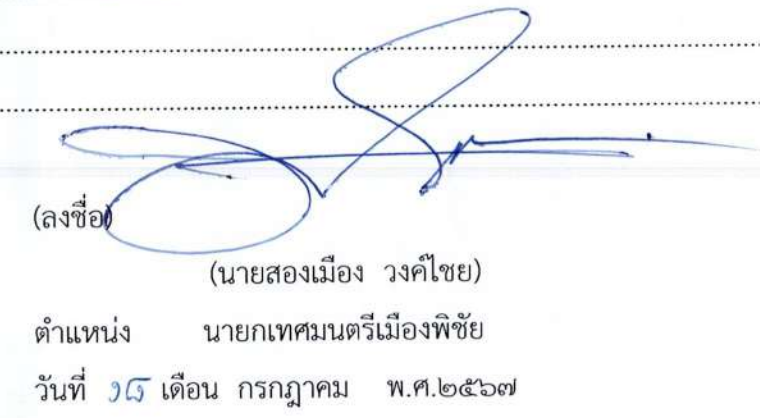 (ลงชื่อ)
(นายสองเมือง วงค์ไชย)
ตำแหน่ง นายกเทศมนตรีเมืองพิชัย
วันที่ ๑๘ เดือน กรกฎาคม พ.ศ.๒๕๖๗